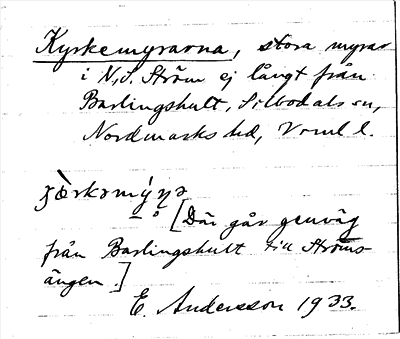 Kyrkemyrarna, stora myrar
i N. S. Ström ej långt från
Barlingshult, Silbodals sn,
Nordmarks hd, Vrml l.
[Där går genväg
från Barlingshult till Ströms-
ängen.]
E. Andersson 1933.